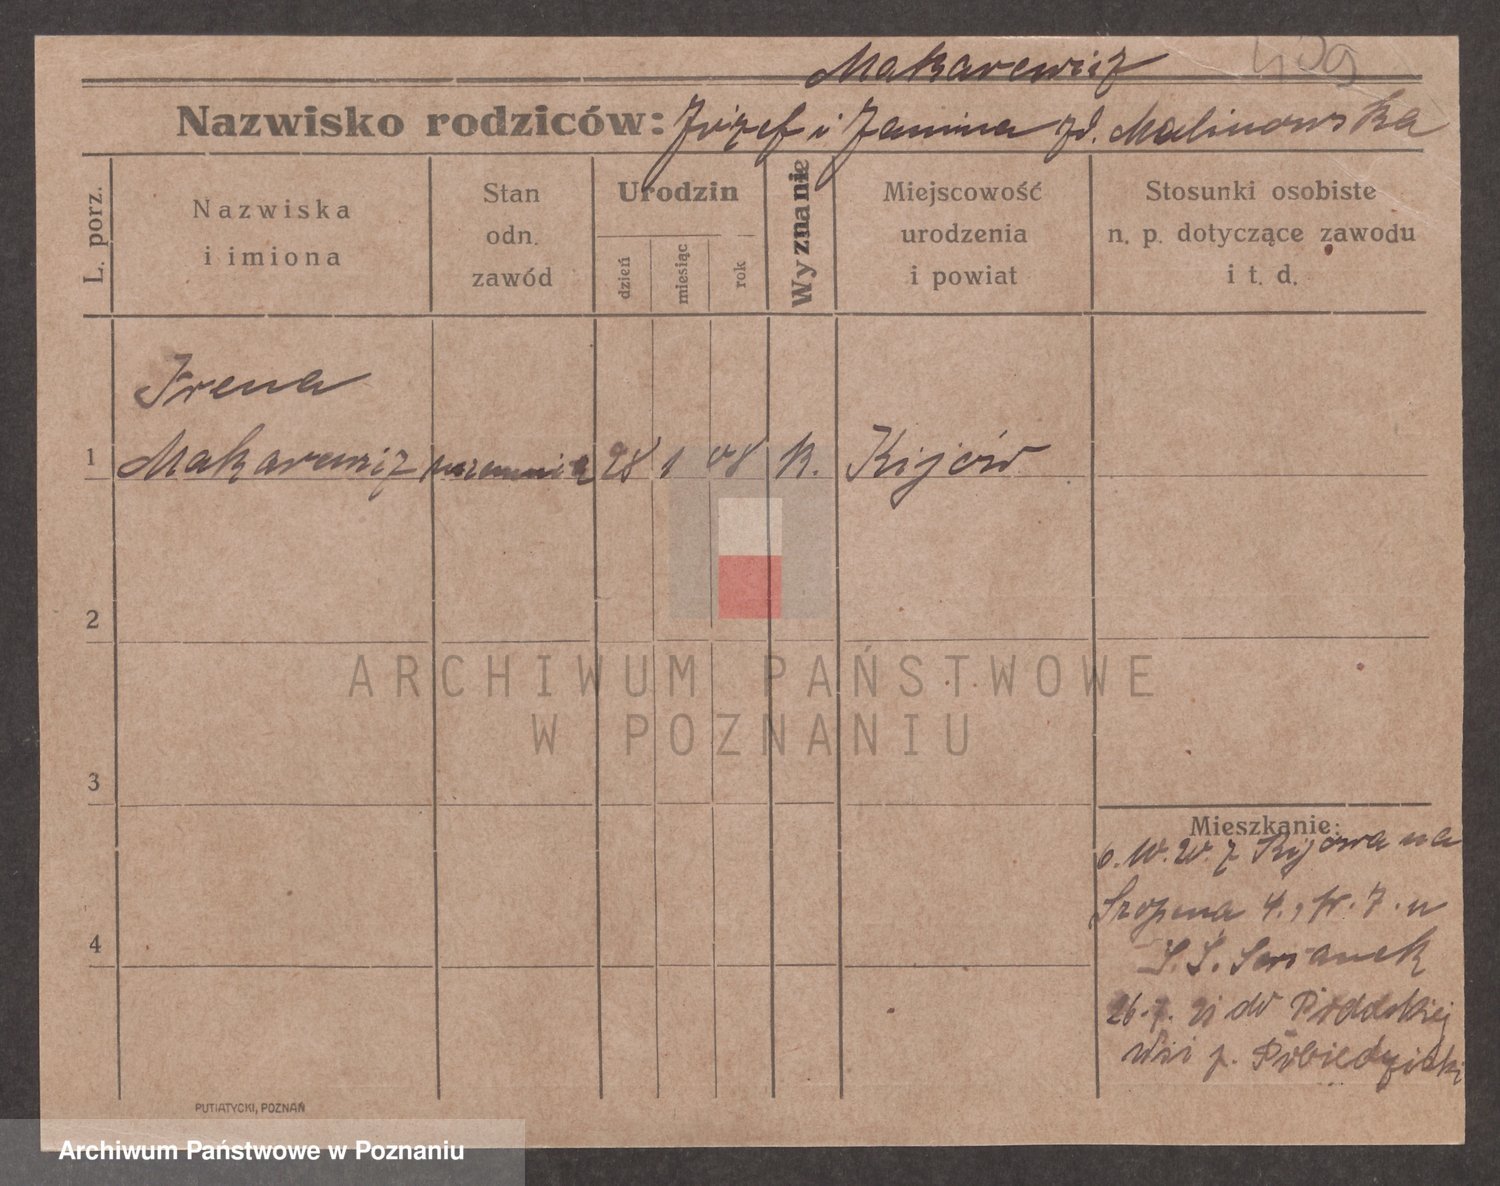 Makarewicz
Nazwisko rodziców: Józef i Janina zd. Malinowska
L. porz.
Nazwiska
i imiona
Stan
odn.
zawód
Urodzin
dzień
miesiąc
rok
Wyznanie
Miejscowość
urodzenia
i powiat
Stosunki osobiste
n. p. dotyczące zawodu
i t. d.
Irena
1 Makarewicz 28 1 08 k. Kijów
2
3
4
Mieszkanie:
z Kijowa na
Szopena 4., 7. u
26. 7. 21 do
wsi p.
PUTIATYCKI, POZNAŃ
ARCHIWUM PAŃSTWOWE
W POZNANIU
Archiwum Państwowe w Poznaniu